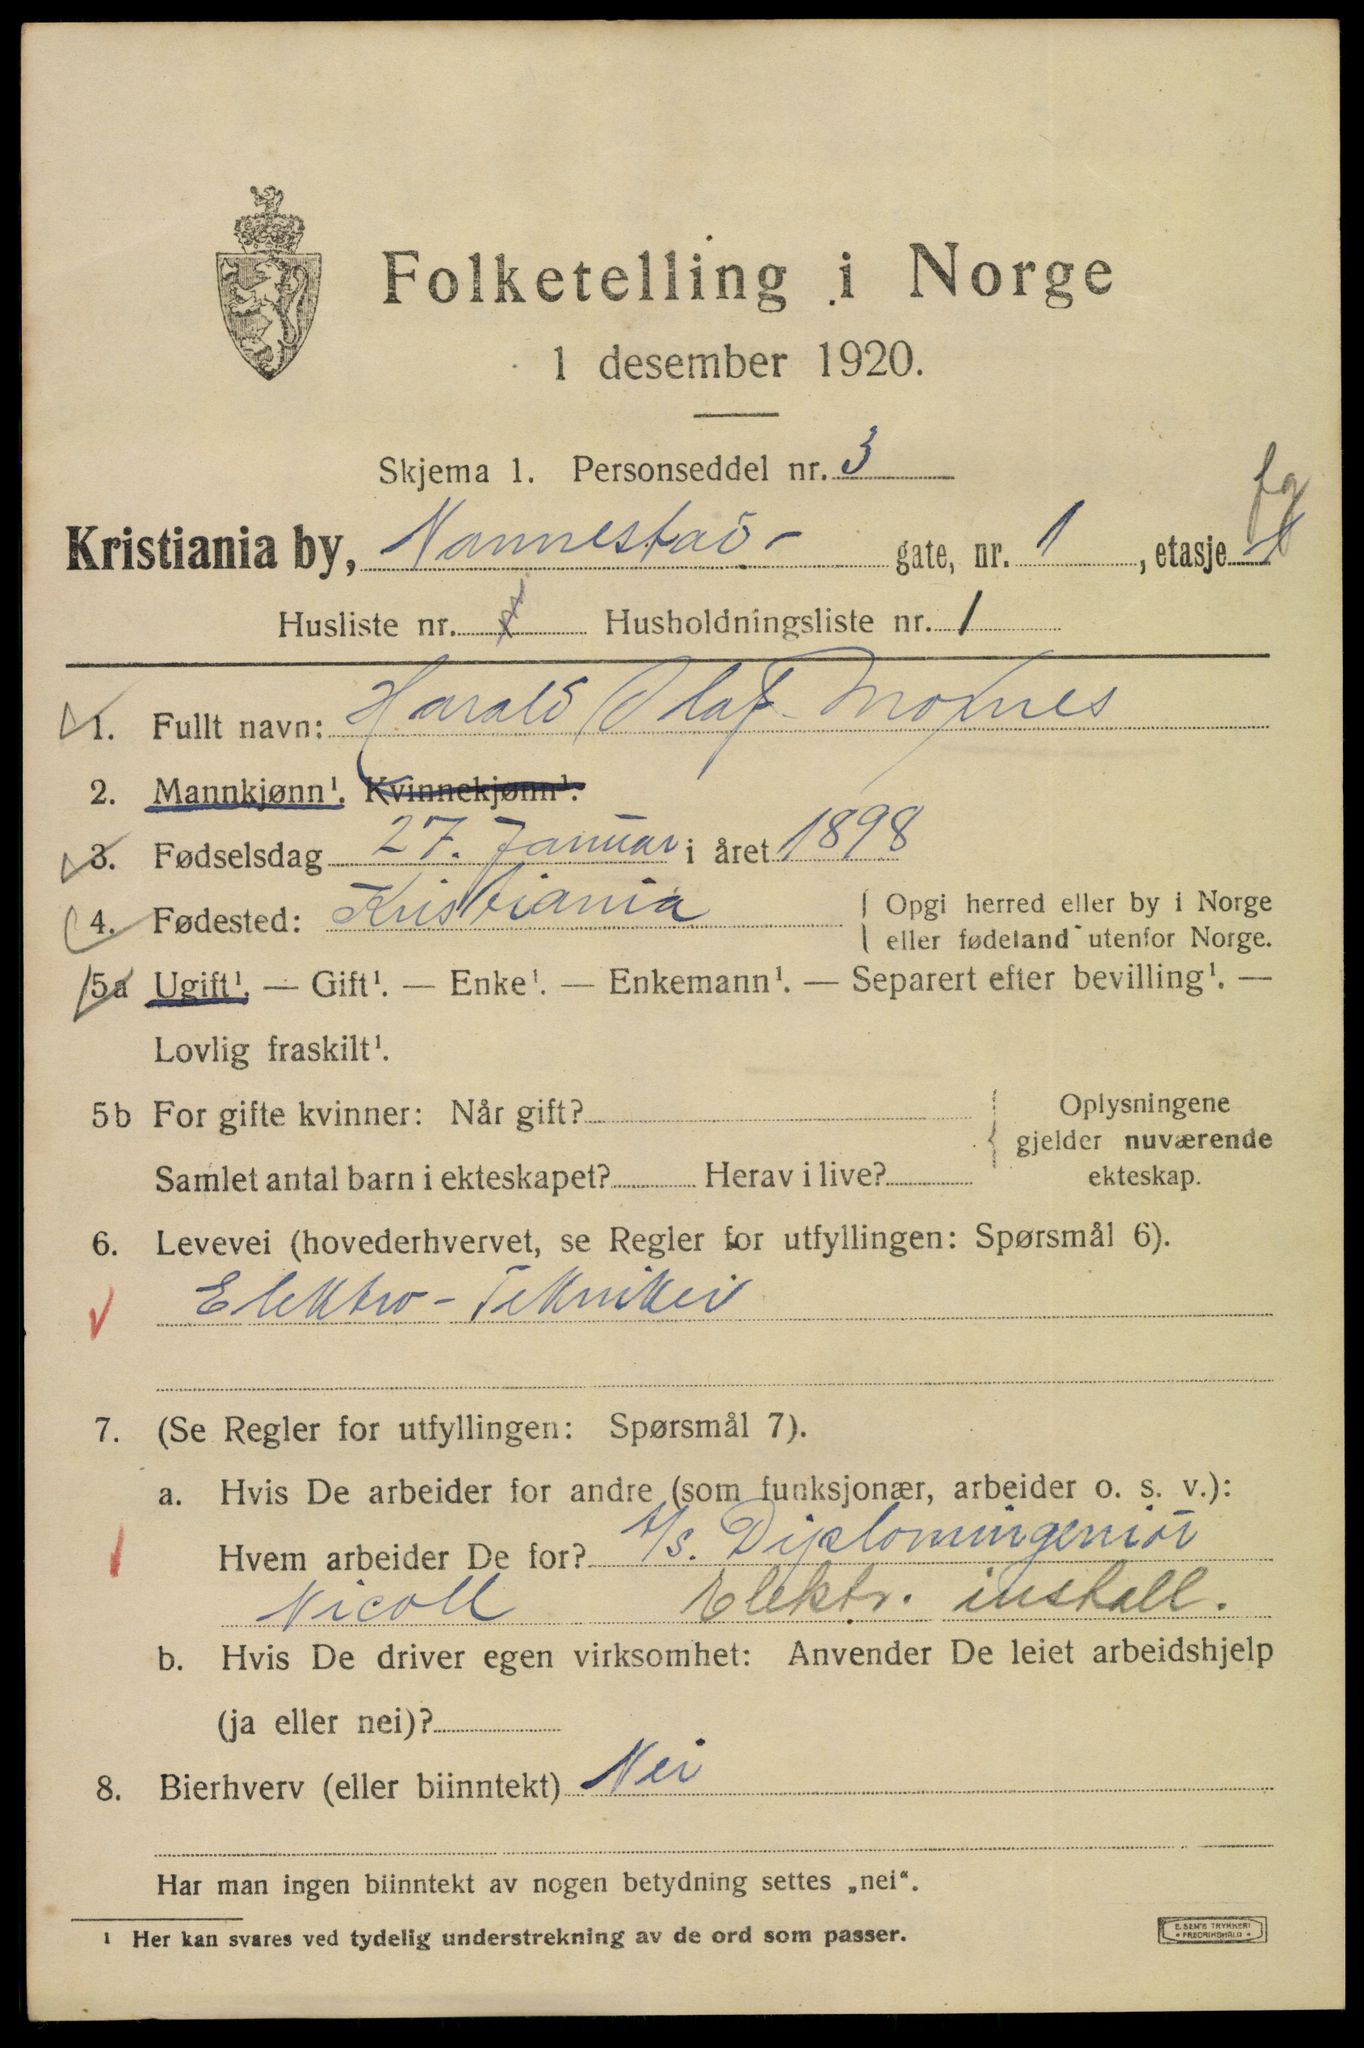 Folketelling i Norge
1 desember 1920.
Skjema 1. Personseddel nr. 3
Kristiania by, Nannestad- gate, nr. 1, etasje 1
Husliste nr. Husholdningsliste nr. 1
1. Fullt navn: Harald Olaf
2. Mannkjønn¹. Kvinnekjønn¹.
3. Fødselsdag 27. Januar i året 1898
4. Fødested: Kristiania
Opgi herred eller by i Norge
eller fødeland utenfor Norge.
5a Ugift¹. — Gift¹. — Enke¹. — Enkemann¹. — Separert efter bevilling¹. —
Lovlig fraskilt¹.
5b For gifte kvinner: Når gift?
Samlet antal barn i ekteskapet? Herav i live?
Oplysningene
gjelder nuværende
ekteskap.
6. Levevei (hovederhvervet, se Regler for utfyllingen: Spørsmål 6).
Elektro-Tekniker
7. (Se Regler for utfyllingen: Spørsmål 7).
a. Hvis De arbeider for andre (som funksjonær, arbeider o. s. v.):
Hvem arbeider De for? A/s. Diplomingeniör
Nicoll Elektr. install.
b. Hvis De driver egen virksomhet: Anvender De leiet arbeidshjelp
(ja eller nei)?
8. Bierhverv (eller biinntekt) Nei
Har man ingen biinntekt av nogen betydning settes „nei“.
¹ Her kan svares ved tydelig understrekning av de ord som passer.
E. SEM'S TRYKKERI
FREDRIKSHALD